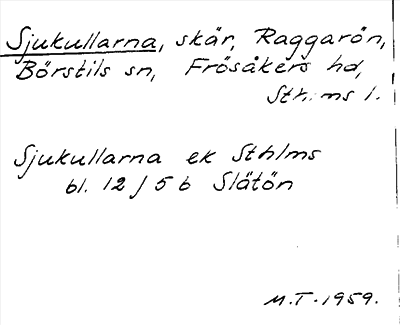 Sjukullarna, skär, Raggarön,
Börstils sn, Frösåkers hd,
Sthlms l.
Sjukullarna ek Sthlms
bl. 12 J 5 b Slätön
M.T. 1959.